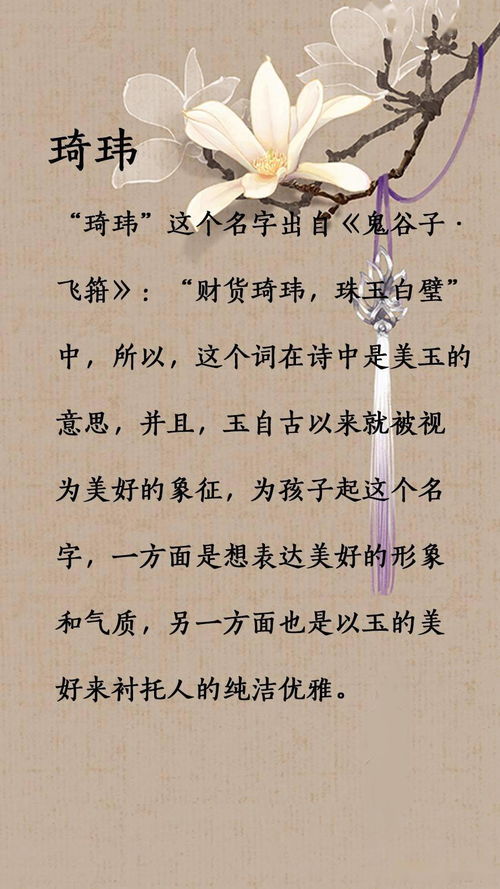 琦玮
“琦玮”这个名字出自《鬼谷子·
飞箝》：“财货琦玮，珠玉白璧”
中，所以，这个词在诗中是美玉的
意思，并且，玉自古以来就被视
为美好的象征，为孩子起这个名
字，一方面是想表达美好的形象
和气质，另一方面也是以玉的美
好来衬托人的纯洁优雅。